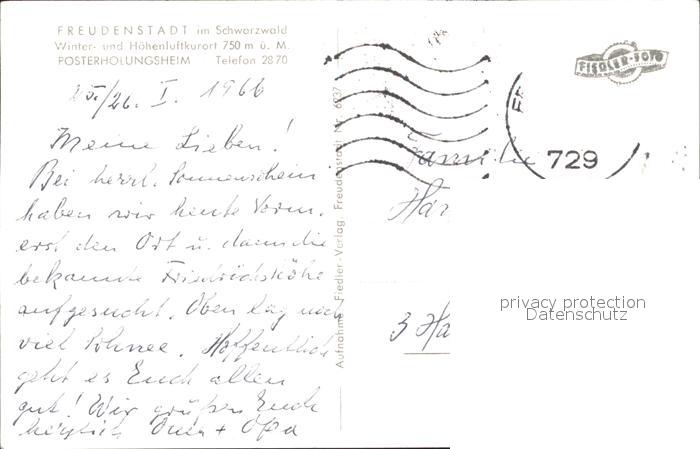 FREUDENSTADT im Schwarzwald
Winter- und Höhenluftkurort 750 m ü. M.
POSTERHOLUNGSHEIM Telefon 2870
25./26. I. 1966
Meine Lieben!
Bei herrl. Sonnenschein
haben wir heute Vorm.
erst den Ort u. dann die
bekannte Friedrichshöhe
aufgesucht. Oben lag noch
viel Schnee. Hoffentlich
geht es Euch allen
gut! Wir grüßen Euch
herzlich Oma + Opa
Aufnahme: Fiedler-Verlag Freudenstadt Nr. 6937
FIEDLER-FOTO
729
Familie
Har
3 Ha
privacy protection
Datenschutz